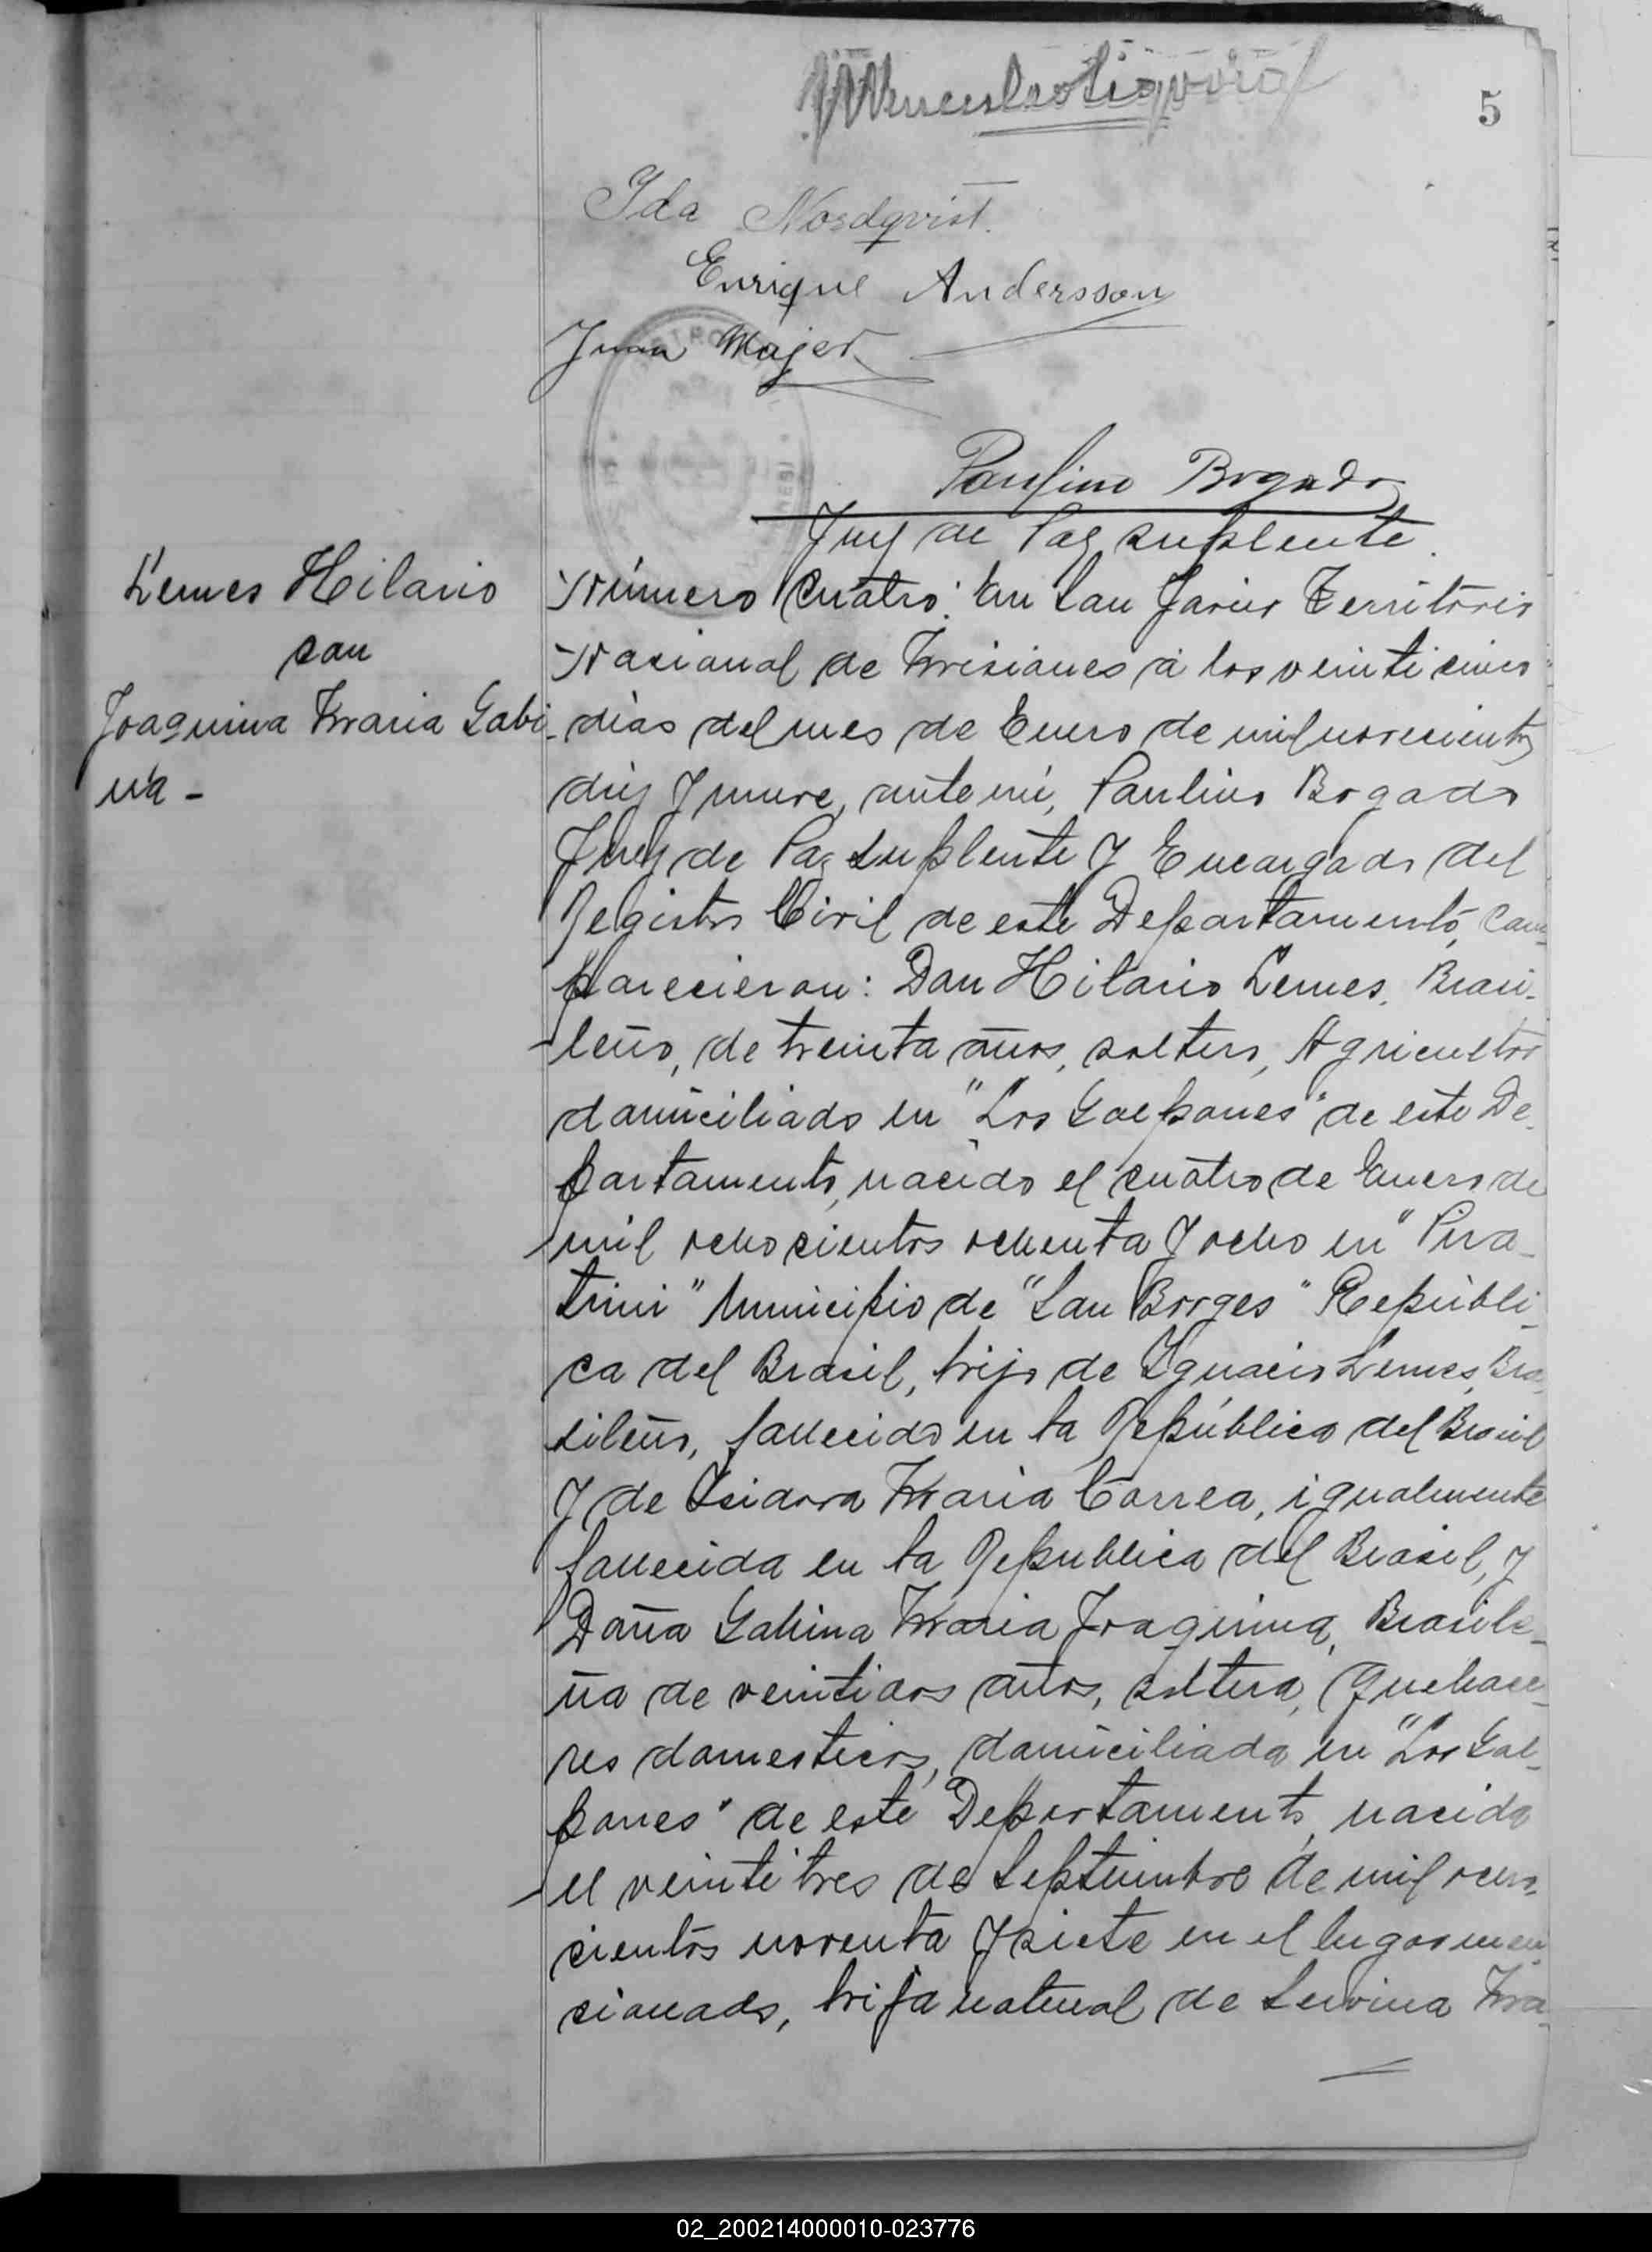 5
Ida Nordqvist.
Enrique Andersson
Juan Majer
Paulino Bogado
Juez de Paz suplente.
Lemes Hilario
con
Joaquina Maria Gabi-
na -
Número Cuatro: En San Javier Territorio
Nacional de Misiones á los veinticinco
dias del mes de Enero de mil novecientos
diez y nueve, ante mí, Paulino Bogado
Juez de Paz suplente y Encargado del
Registro Civil de este Departamento, com-
parecieron: Don Hilario Lemes, Brasi-
leño, de treinta años, soltero, Agricultor
domiciliado en "Los Galpones" de este De-
partamento, nacido el cuatro de Enero de
mil ochocientos ochenta y ocho en "Pira-
tini" Municipio de "San Borges" Repúbli-
ca del Brasil, hijo de Ignacio Lemes, Bra-
sileño, fallecido en la República del Brasil
y de Isidora Maria Correa, igualmente
fallecida en la Republica del Brasil, y
Doña Gabina Maria Joaquina, Brasile-
ña de veintidos años, soltera, Quehace-
res domesticos, domiciliada en "Los Gal-
pones" de este Departamento, nacida
el veintitres de Septiembre de mil ocho-
cientos noventa y siete en el lugar men-
cionado, hija natural de Ma-
02_200214000010-023776